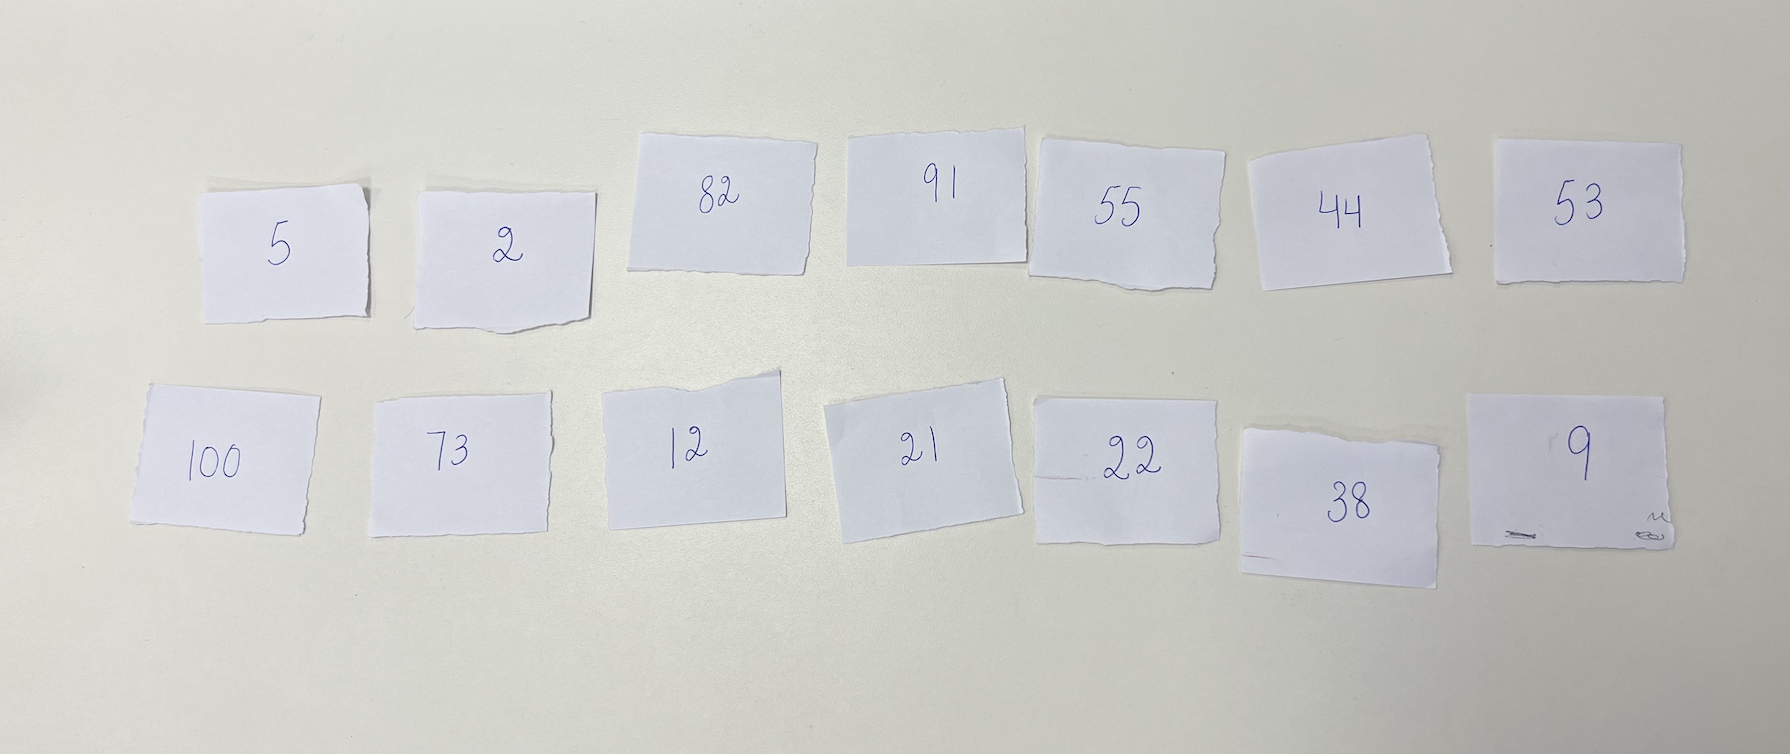 5 2 82 91 55 44 53
100 73 12 21 22 38 9